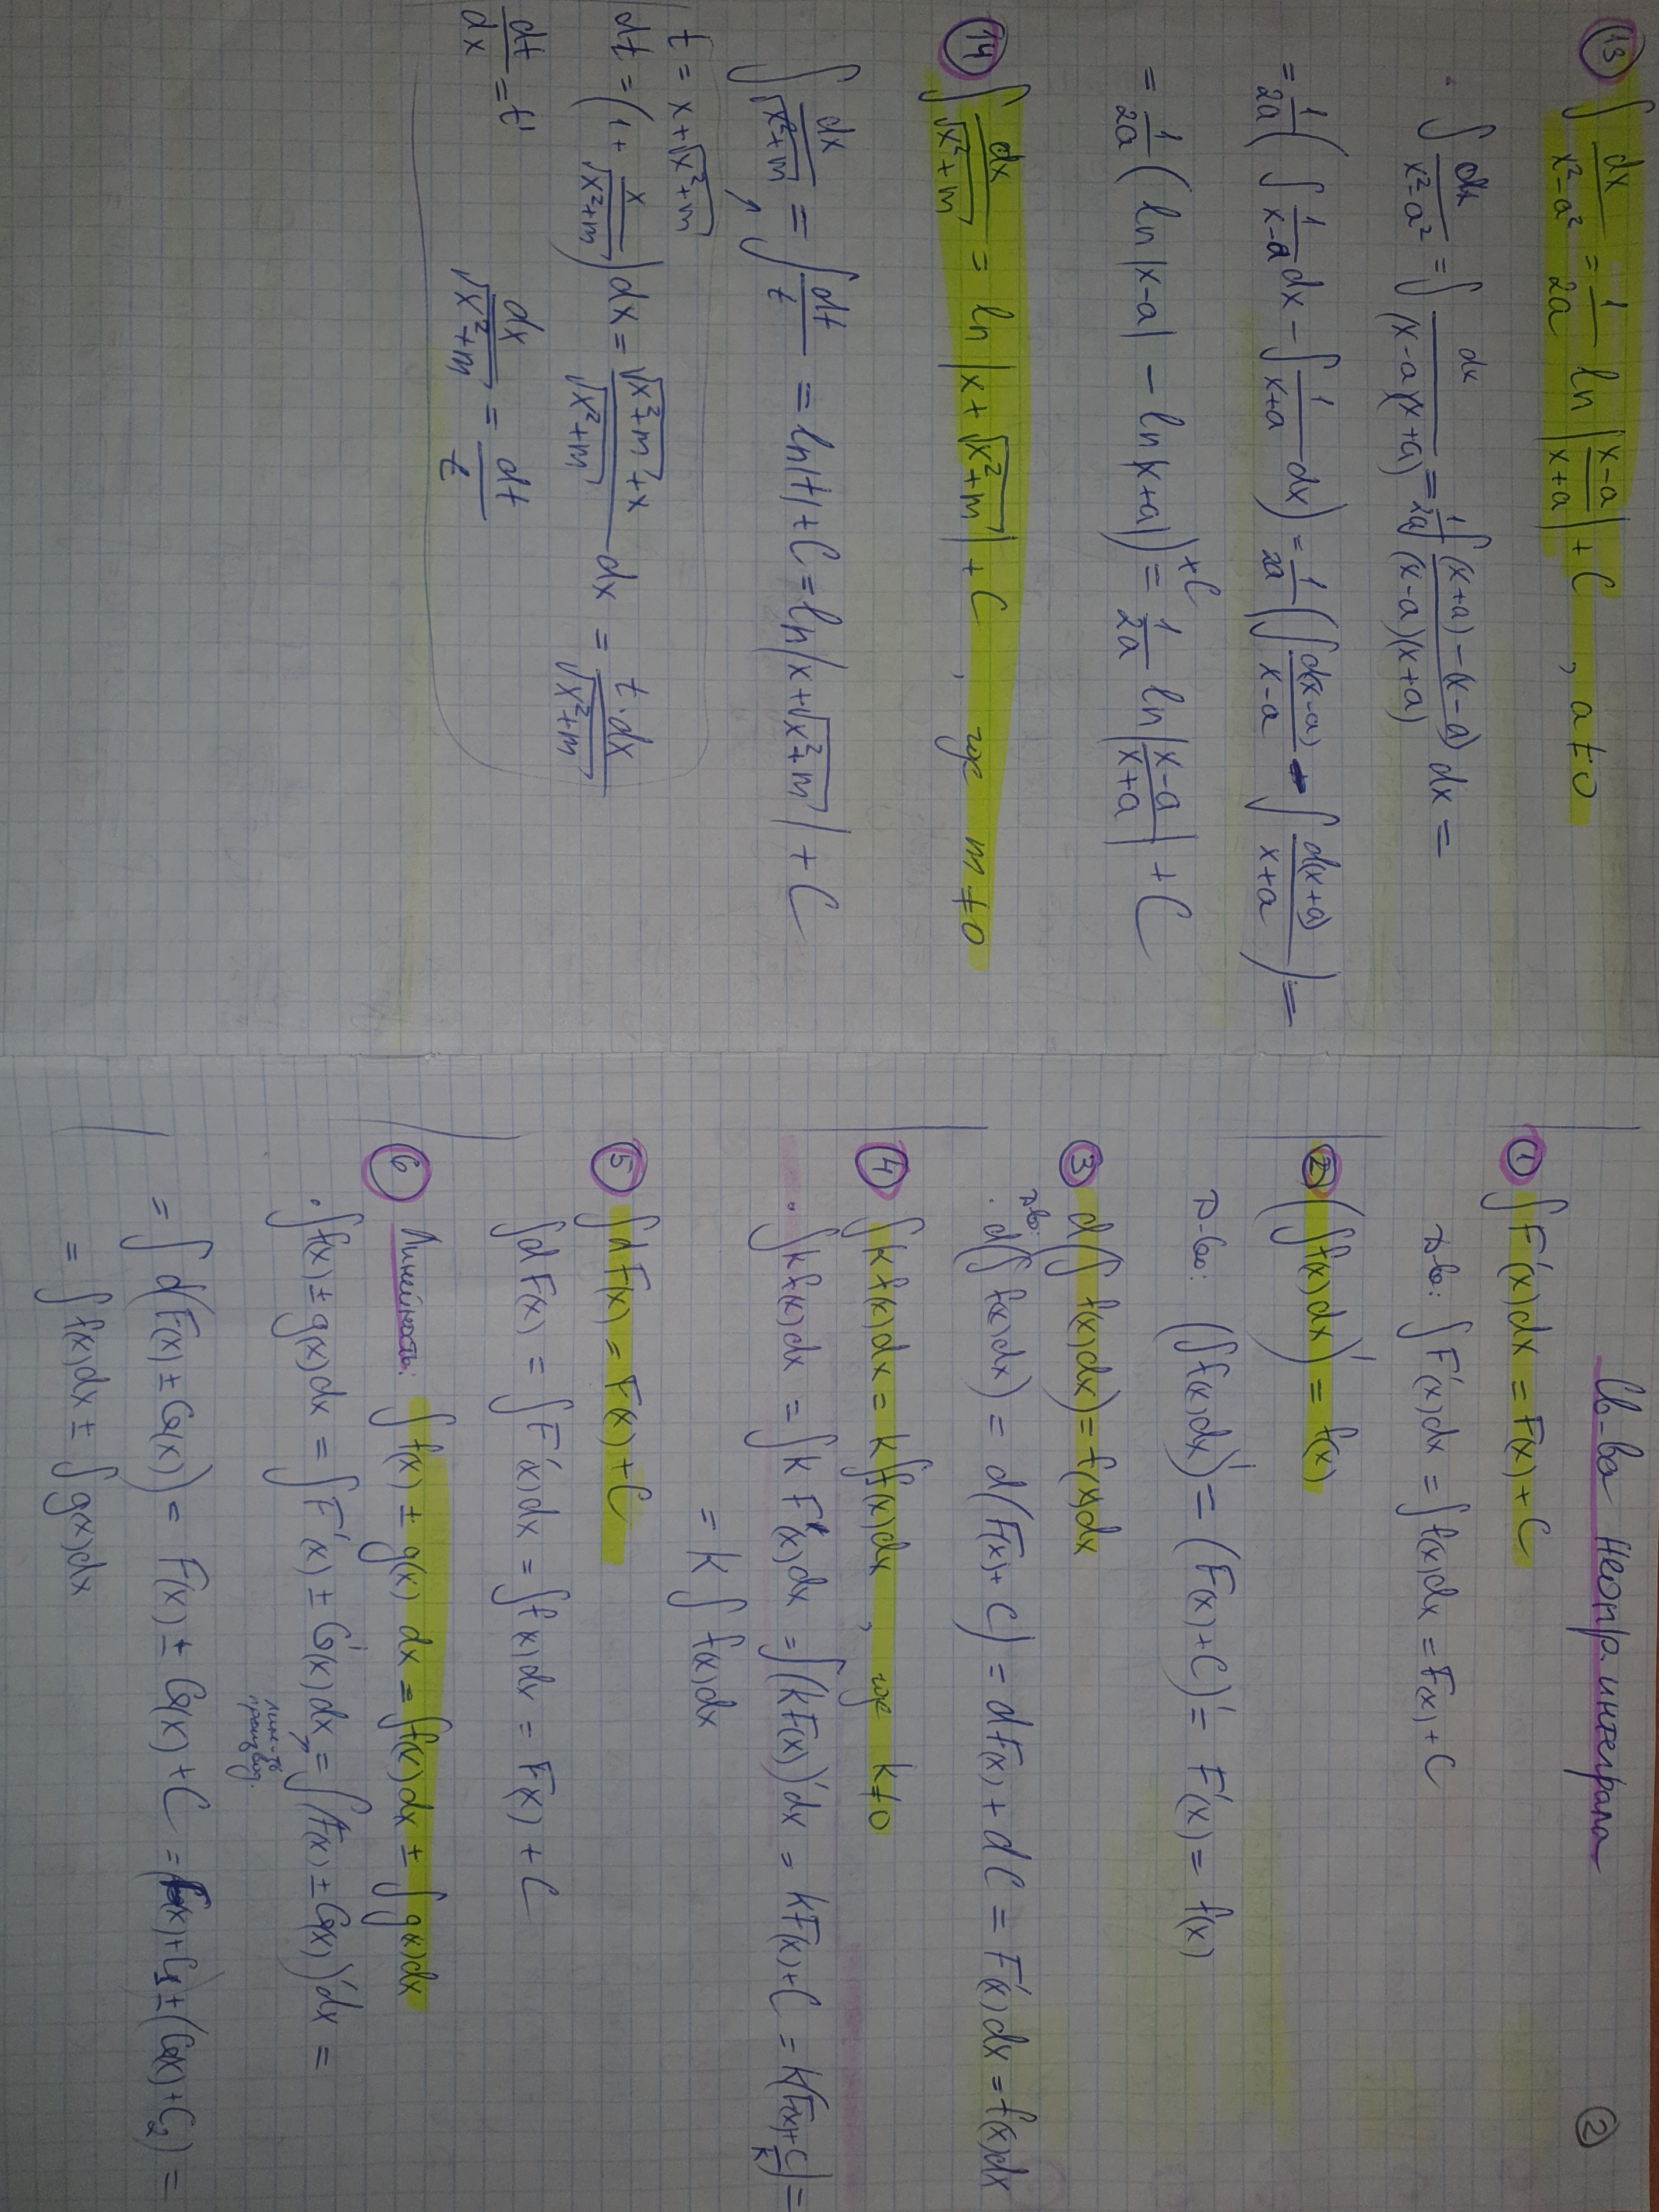 ⑬ ∫ dx/(x²-a²) = 1/2a ln |(x-a)/(x+a)| + C, a≠0
· ∫ dx/(x²-a²) = ∫ dx/((x-a)(x+a)) = 1/2a ∫ ((x+a)-(x-a))/((x-a)(x+a)) dx =
= 1/2a ( ∫ 1/(x-a) dx - ∫ 1/(x+a) dx) = 1/2a ( ∫ d(x-a)/(x-a) - ∫ d(x+a)/(x+a) ) =
= 1/2a ( ln |x-a| - ln |x+a| ) + C = 1/2a ln |(x-a)/(x+a)| + C
⑭ ∫ dx/√(x²+m) = ln |x+√(x²+m)| + C, где m≠0
∫ dx/√(x²+m) = ∫ dt/t = ln|t| + C = ln|x+√(x²+m)| + C
t = x+√(x²+m)
dt = (1 + x/√(x²+m)) dx = (√(x²+m)+x)/√(x²+m) dx = t·dx/√(x²+m)
dt/dx = t' dx/√(x²+m) = dt/t
②
Св-ва неопр. интеграла
① ∫ F'(x)dx = F(x) + C
Д-во: ∫ F'(x)dx = ∫ f(x)dx = F(x) + C
② (∫ f(x)dx)' = f(x)
Д-во: (∫ f(x)dx)' = (F(x)+C)' = F'(x) = f(x)
③ d(∫ f(x)dx) = f(x)dx
Д-во:
· d(∫ f(x)dx) = d(F(x)+C) = dF(x) + dC = F'(x)dx = f(x)dx
④ ∫ k f(x)dx = k ∫ f(x)dx, где k≠0
· ∫ k f(x)dx = ∫ k F'(x)dx = ∫ (kF(x))'dx = kF(x)+C = k(F(x)+C/k) =
= k ∫ f(x)dx
⑤ ∫ d F(x) = F(x) + C
∫ d F(x) = ∫ F'(x)dx = ∫ f(x)dx = F(x) + C
⑥ Линейность: ∫ f(x) ± g(x) dx = ∫ f(x)dx ± ∫ g(x)dx
· ∫ f(x) ± g(x)dx = ∫ F'(x) ± G'(x)dx = ∫ (F(x) ± G(x))'dx =
лин-ть
производ.
= ∫ d(F(x) ± G(x)) = F(x) ± G(x) + C = (F(x)+C₁) ± (G(x)+C₂) =
= ∫ f(x)dx ± ∫ g(x)dx